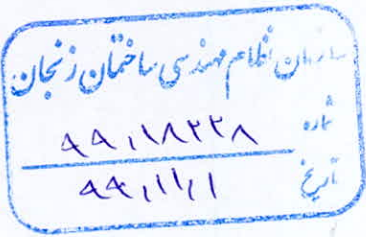 سازمان نظام مهندسی ساختمان زنجان
شماره ۹۹,۱۸۲۲۸
تاریخ ۹۹,۱۱,۱